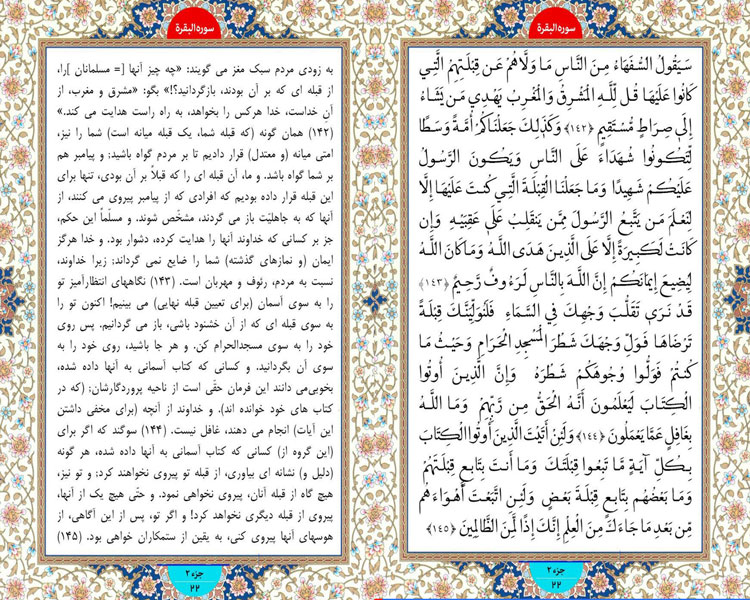 سوره البقرة
سَيَقُولُ السُّفَهَاءُ مِنَ النَّاسِ مَا وَلَّاهُمْ عَن قِبْلَتِهِمُ الَّتِي
كَانُوا عَلَيْهَا قُل لِّلَّهِ الْمَشْرِقُ وَالْمَغْرِبُ يَهْدِي مَن يَشَاءُ
إِلَىٰ صِرَاطٍ مُّسْتَقِيمٍ ﴿۱۴۲﴾ وَكَذَٰلِكَ جَعَلْنَاكُمْ أُمَّةً وَسَطًا
لِّتَكُونُوا شُهَدَاءَ عَلَى النَّاسِ وَيَكُونَ الرَّسُولُ
عَلَيْكُمْ شَهِيدًا وَمَا جَعَلْنَا الْقِبْلَةَ الَّتِي كُنتَ عَلَيْهَا إِلَّا
لِنَعْلَمَ مَن يَتَّبِعُ الرَّسُولَ مِمَّن يَنقَلِبُ عَلَىٰ عَقِبَيْهِ وَإِن
كَانَتْ لَكَبِيرَةً إِلَّا عَلَى الَّذِينَ هَدَى اللَّهُ وَمَا كَانَ اللَّهُ
لِيُضِيعَ إِيمَانَكُمْ إِنَّ اللَّهَ بِالنَّاسِ لَرَءُوفٌ رَّحِيمٌ ﴿۱۴۳﴾
قَدْ نَرَىٰ تَقَلُّبَ وَجْهِكَ فِي السَّمَاءِ فَلَنُوَلِّيَنَّكَ قِبْلَةً
تَرْضَاهَا فَوَلِّ وَجْهَكَ شَطْرَ الْمَسْجِدِ الْحَرَامِ وَحَيْثُ مَا
كُنتُمْ فَوَلُّوا وُجُوهَكُمْ شَطْرَهُ وَإِنَّ الَّذِينَ أُوتُوا
الْكِتَابَ لَيَعْلَمُونَ أَنَّهُ الْحَقُّ مِن رَّبِّهِمْ وَمَا اللَّهُ
بِغَافِلٍ عَمَّا يَعْمَلُونَ ﴿۱۴۴﴾ وَلَئِنْ أَتَيْتَ الَّذِينَ أُوتُوا الْكِتَابَ
بِكُلِّ آيَةٍ مَّا تَبِعُوا قِبْلَتَكَ وَمَا أَنتَ بِتَابِعٍ قِبْلَتَهُمْ
وَمَا بَعْضُهُم بِتَابِعٍ قِبْلَةَ بَعْضٍ وَلَئِنِ اتَّبَعْتَ أَهْوَاءَهُم
مِّن بَعْدِ مَا جَاءَكَ مِنَ الْعِلْمِ إِنَّكَ إِذًا لَّمِنَ الظَّالِمِينَ ﴿۱۴۵﴾
جزء ۲
۲۲
سوره البقرة
به زودی مردم سبک مغز می گویند: «چه چیز آنها [= مسلمانان ]را،
از قبله ای که بر آن بودند، بازگردانید؟!» بگو: «مشرق و مغرب، از
آنِ خداست، خدا هرکس را بخواهد، به راه راست هدایت می کند.»
(۱۴۲) همان گونه (که قبله شما، یک قبله میانه است) شما را نیز،
امتی میانه (و معتدل) قرار دادیم تا بر مردم گواه باشید; و پیامبر هم
بر شما گواه باشد. و ما، آن قبله ای را که قبلاً بر آن بودی، تنها برای
این قبله قرار داده بودیم که افرادی که از پیامبر پیروی می کنند، از
آنها که به جاهلیّت باز می گردند، مشخّص شوند. و مسلّماً این حکم،
جز بر کسانی که خداوند آنها را هدایت کرده، دشوار بود. و خدا هرگز
ایمان (و نمازهای گذشته) شما را ضایع نمی گرداند; زیرا خداوند،
نسبت به مردم، رئوف و مهربان است. (۱۴۳) نگاههای انتظارآمیز تو
را به سوی آسمان (برای تعیین قبله نهایی) می بینیم! اکنون تو را
به سوی قبله ای که از آن خشنود باشی، باز می گردانیم. پس روی
خود را به سوی مسجدالحرام کن. و هر جا باشید، روی خود را به
سوی آن بگردانید. و کسانی که کتاب آسمانی به آنها داده شده،
بخوبی‌می دانند این فرمان حقّی است از ناحیه پروردگارشان; (که در
کتاب های خود خوانده اند). و خداوند از آنچه (برای مخفی داشتن
این آیات) انجام می دهند، غافل نیست. (۱۴۴) سوگند که اگر برای
(این گروه از) کسانی که کتاب آسمانی به آنها داده شده، هر گونه
(دلیل و) نشانه ای بیاوری، از قبله تو پیروی نخواهند کرد; و تو نیز،
هیچ گاه از قبله آنان، پیروی نخواهی نمود. و حتّی هیچ یک از آنها،
پیروی از قبله دیگری نخواهد کرد! و اگر تو، پس از این آگاهی، از
هوسهای آنها پیروی کنی، به یقین از ستمکاران خواهی بود. (۱۴۵)
جزء ۲
۲۲